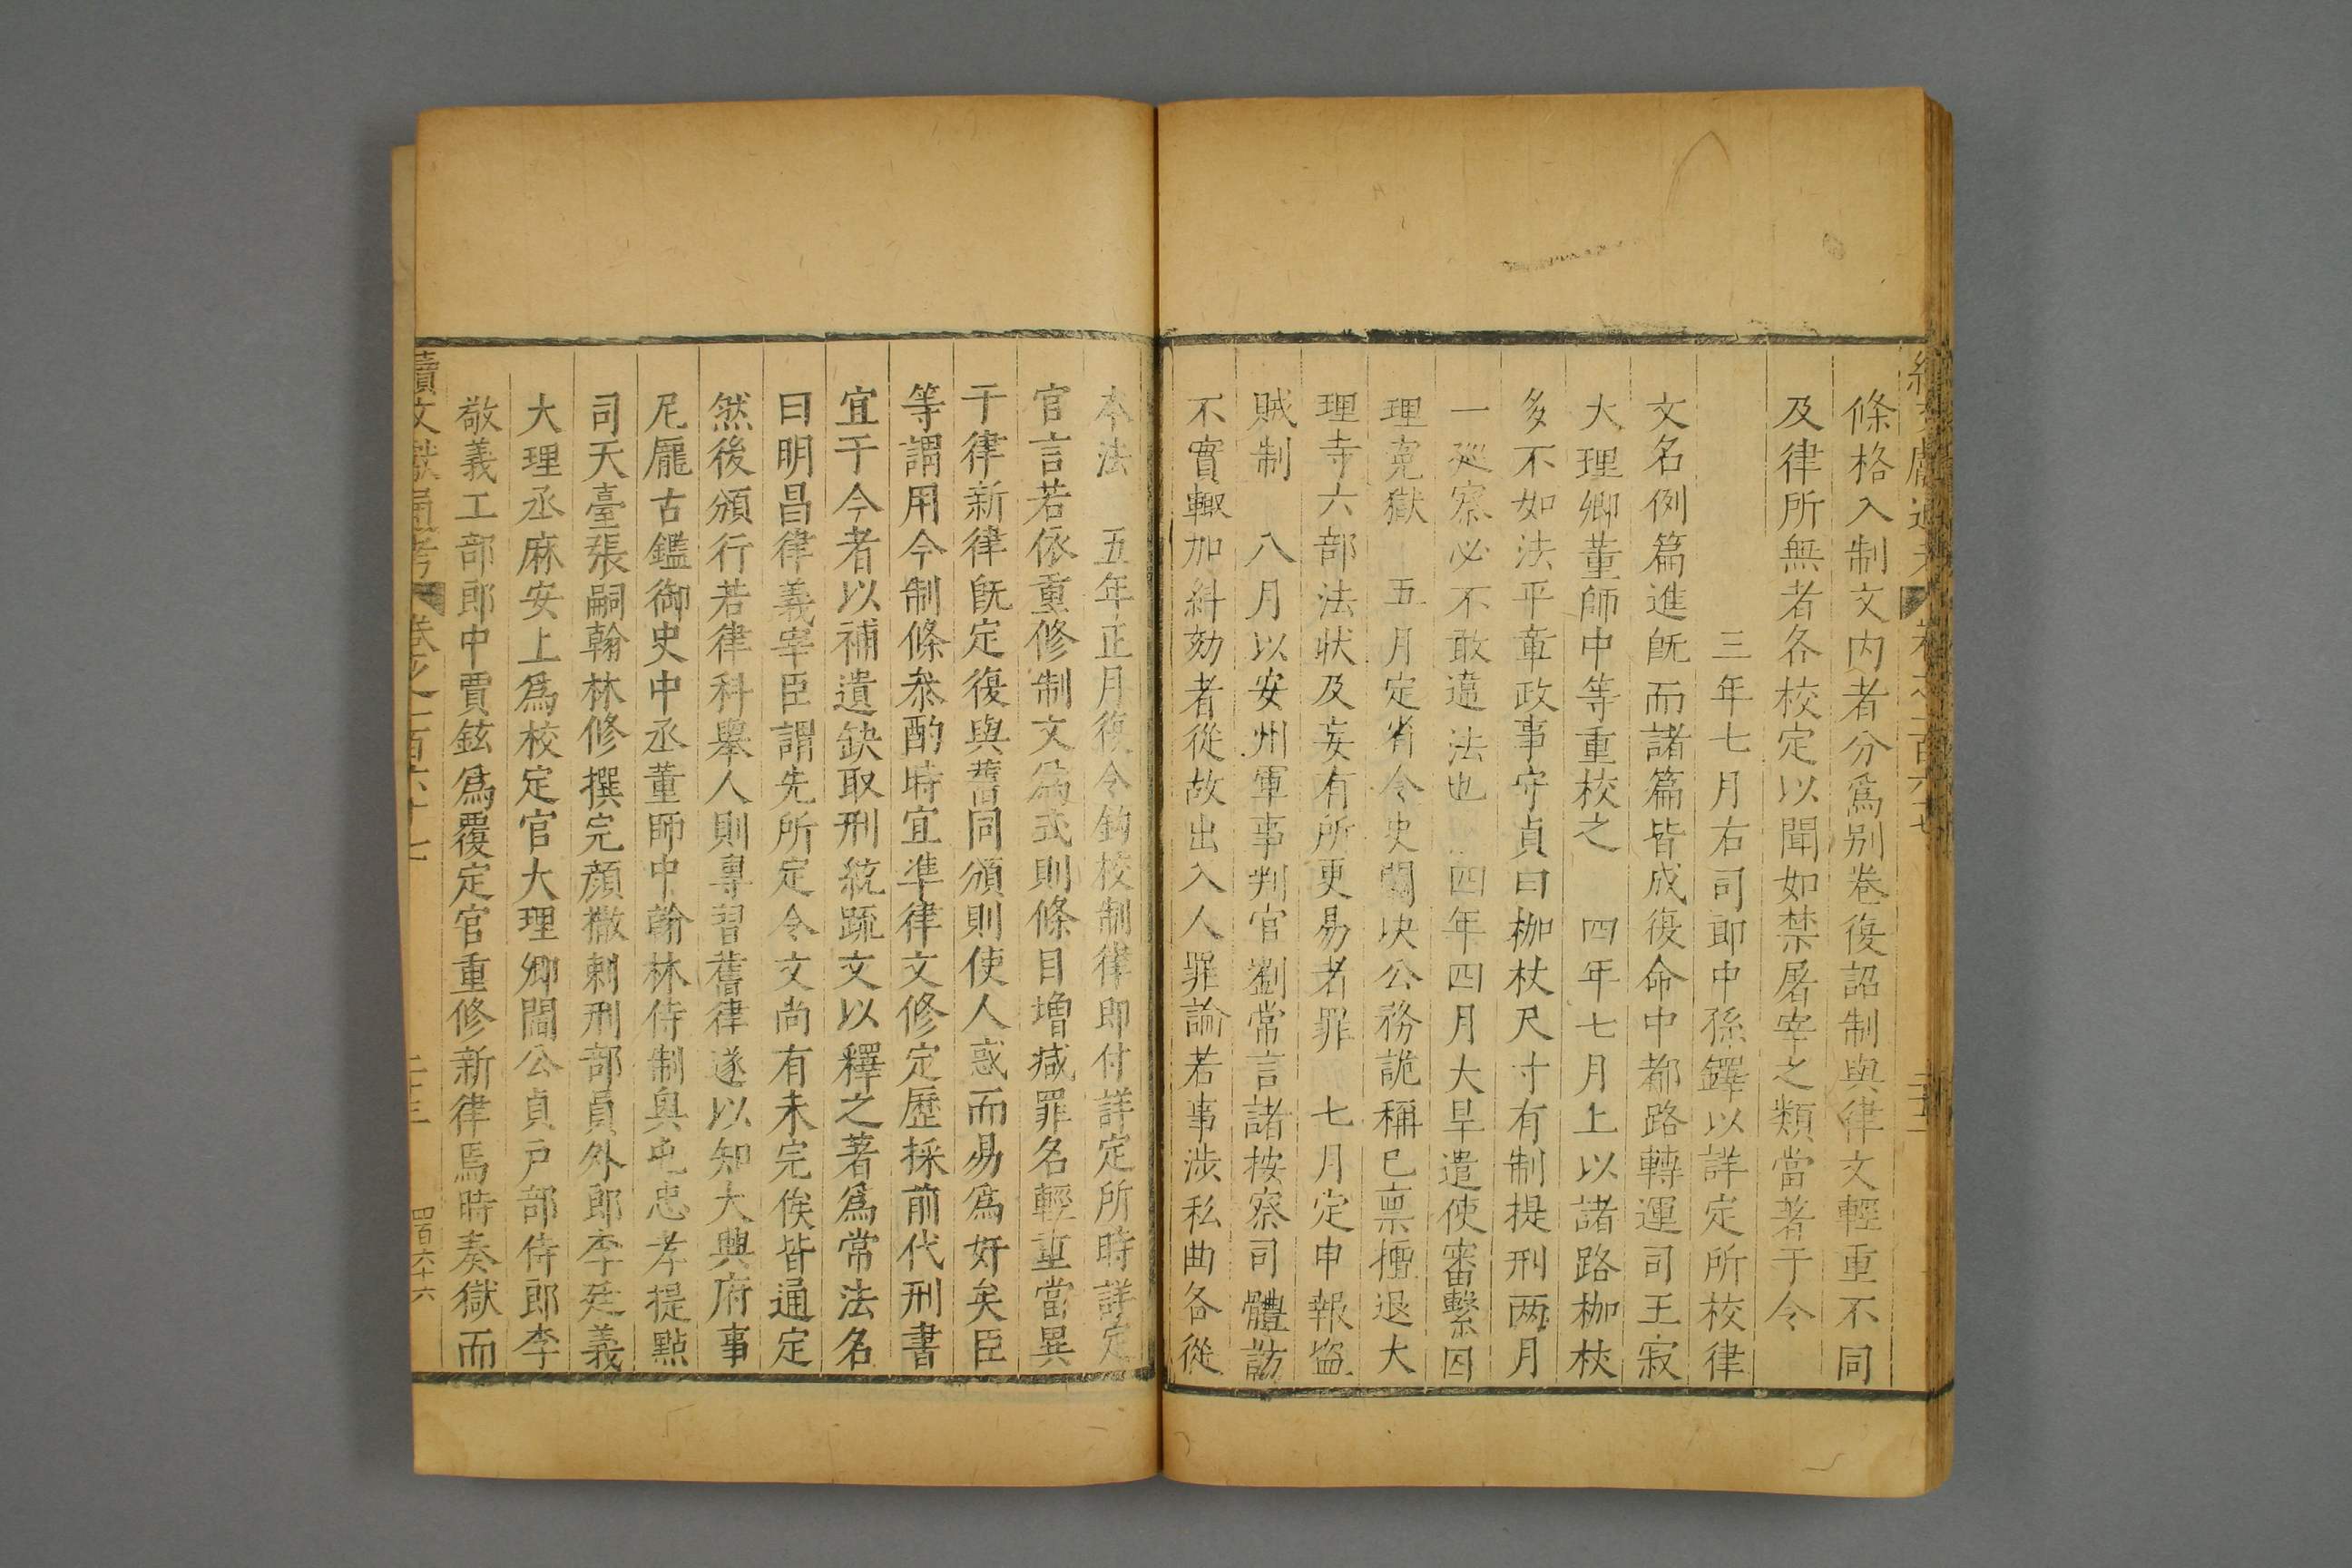 條格入制文内者分爲别卷復詔制與律文輕重不同
及律所無者各校定以聞如禁屠宰之類當著于令
三年七月右司郎中孫鐸以詳定所校律
文名例篇進旣而諸篇皆成復命中都路轉運司王寂
大理卿董師中等重校之　四年七月上以諸路枷杖
多不如法平章政事守貞曰枷杖尺寸有制提刑两月
一廵察必不敢違法也　四年四月大旱遣使審繫囚
理寃獄　五月定省令史關决公務詭稱已禀擅退大
理寺六部法狀及妄有所更易者罪　七月定申報盗
賊制　八月以安州軍事判官劉常言諸按察司體訪
不實輙加糾劾者從故出入人罪論若事涉私曲各從
本法　五年正月復令鈎校制律即付詳定所時詳定
官言若依重修制文爲式則條目增减罪名輕重當異
于律新律旣定復與舊同頒則使人惑而易爲奸矣臣
等謂用今制條叅酌時宜準律文修定歷採前代刑書
宜于今者以補遺缺取刑統疏文以釋之著爲常法名
曰明昌律義宰臣謂先所定令文尚有未完俟皆通定
然後頒行若律科舉人則專習舊律遂以知大興府事
尼厖古鑑御史中丞董師中翰林待制奥屯忠孝提點
司天臺張嗣翰林修撰完顔撒剌刑部員外郎李廷義
大理丞麻安上爲校定官大理卿閻公貞户部侍郎李
敬義工部郎中賈鉉爲覆定官重修新律焉時奏獄而
續文獻通考　卷之一百六十七　　四百六十六